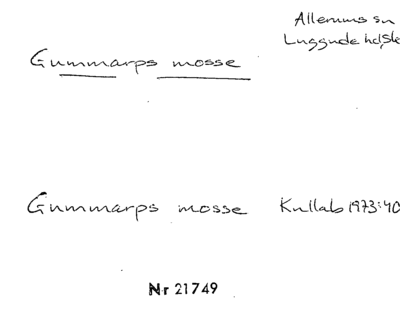 Allerums sn
Luggude hd, Sk
Gummarps mosse
Gummarps mosse Kullab 1973:40
Nr 21749